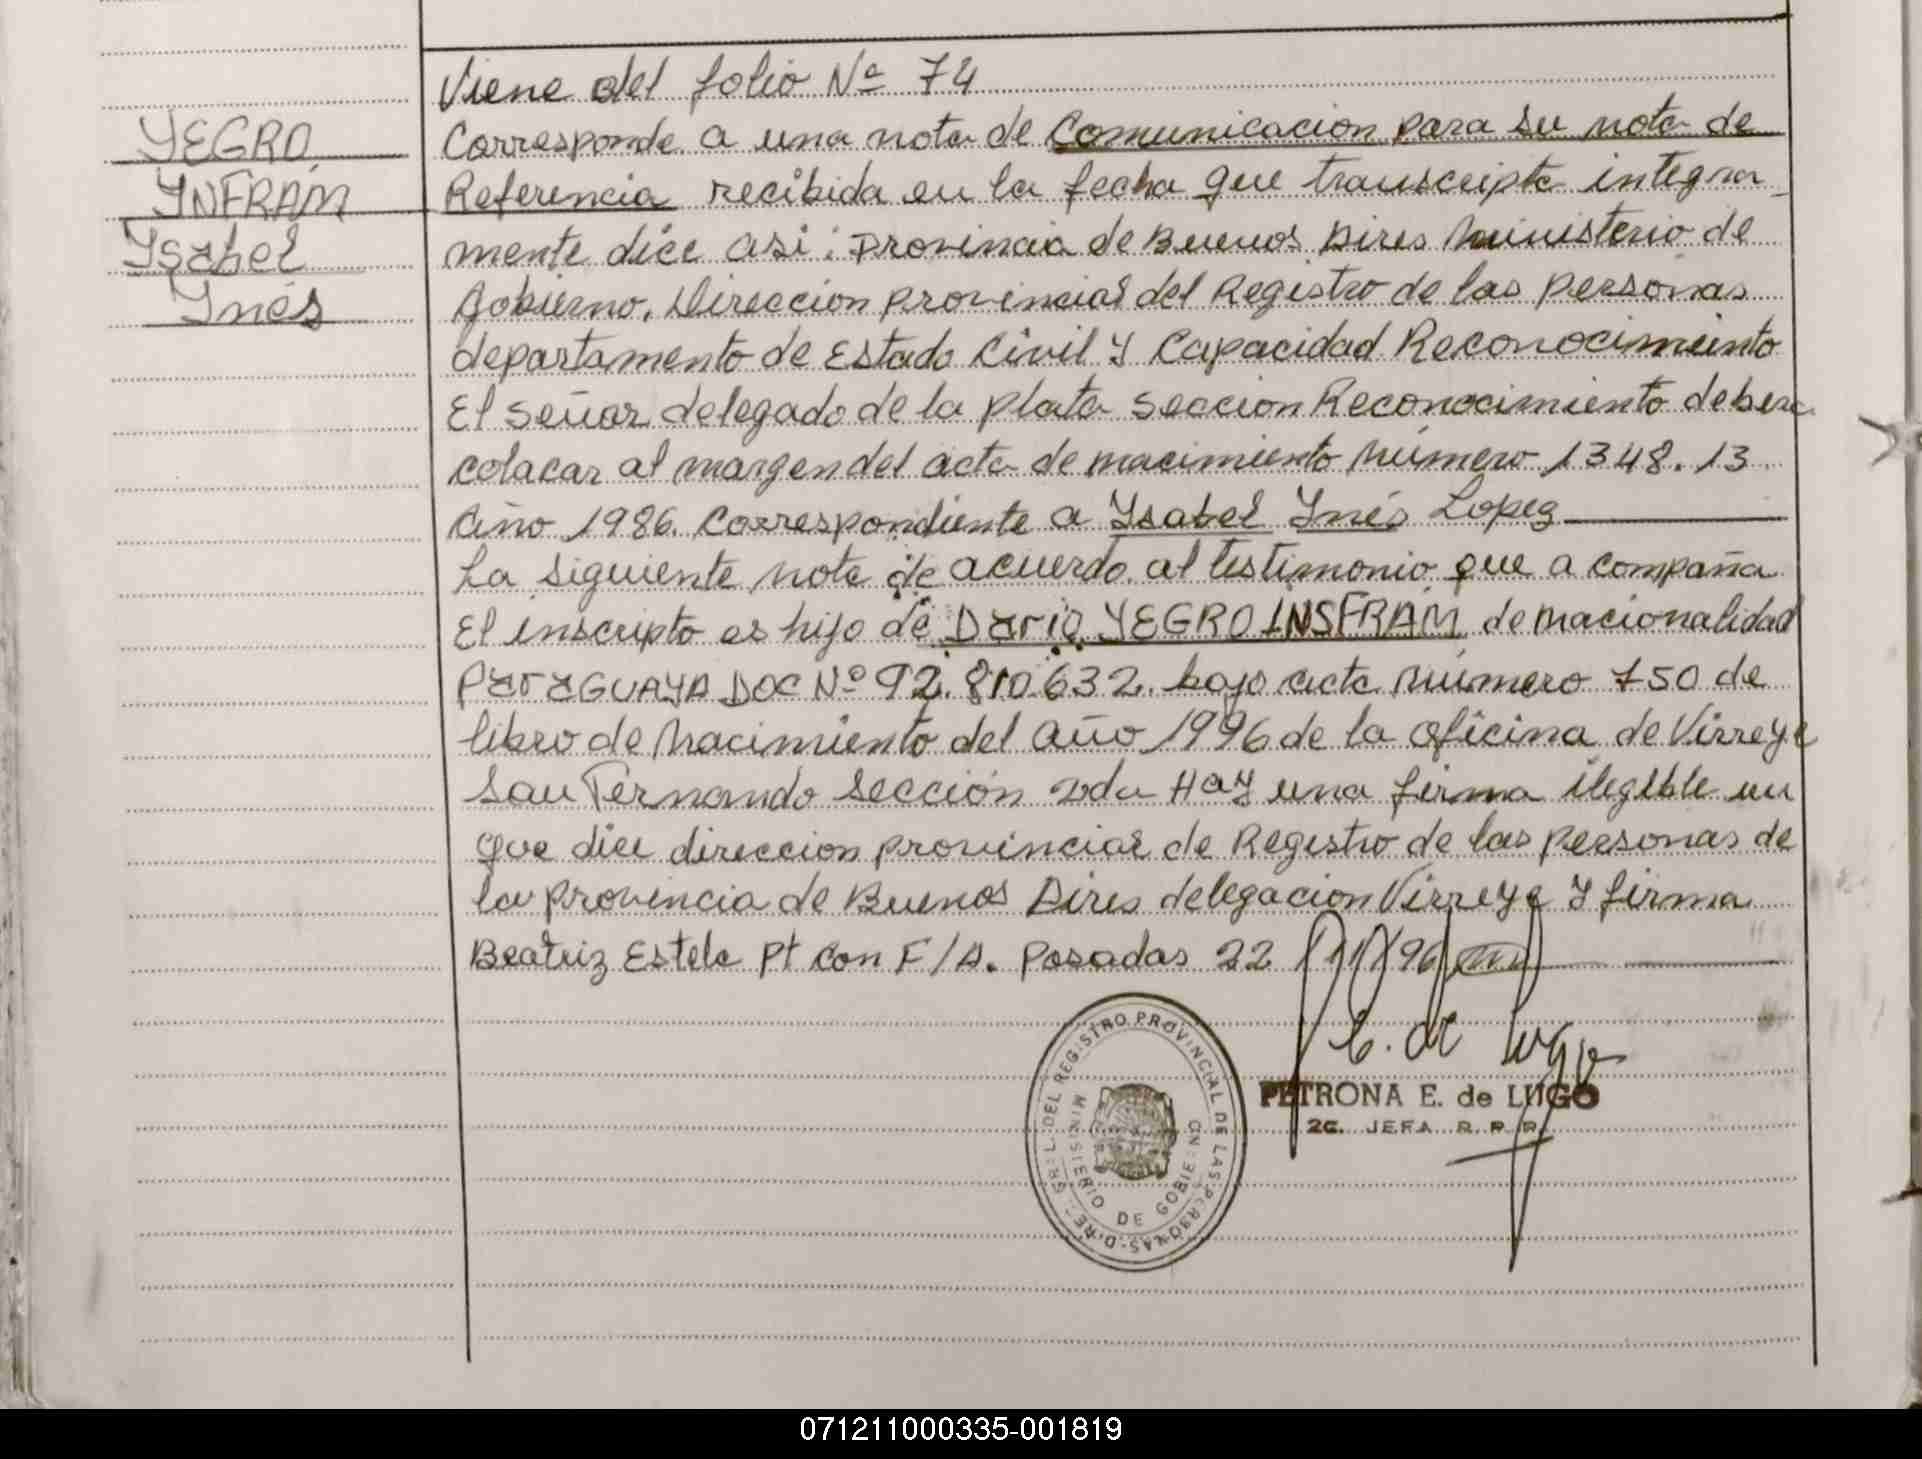 Viene del folio Nº 74
YEGRO
Corresponde a una nota de Comunicacion para su nota de
YNFRAM
Referencia recibida en la fecha que transcripta integra-
Ysabel
mente dice asi: Provincia de Buenos Aires Ministerio de
Ynés
Gobierno. Direccion provincial del Registro de las personas
departamento de Estado Civil y Capacidad Reconocimiento
El señor delegado de la plata seccion Reconocimiento debera
colacar al margen del acta de nacimiento número 1348.13
año 1986. Correspondiente a Ysabel Ynés Lopez
La siguiente nota de acuerdo al testimonio que a compaña
El inscripto es hijo de Dario YEGRO INSFRAM de nacionalidad
ParaGUAYA DOC Nº 92.810.632. bajo acta número 750 de
libro de nacimiento del año 1996 de la oficina de Virreye
San Fernando Sección 2da Hay una firma ilegible en
que dice direccion provincial de Registro de las personas de
la provincia de Buenos Aires delegacion Virreye y firma
Beatriz Estela Pt con F/A. Posadas 22/11/96
E. de Lugo
PETRONA E. de LUGO
2a. JEFA R. P. P.
DIREC. GRAL. DEL REGISTRO PROVINCIAL DE LAS PERSONAS
MINISTERIO DE GOBIERNO
071211000335-001819